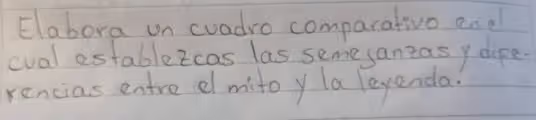 Elabora un cuadro comparativo en el
cual establezcas las semejanzas y dife-
rencias entre el mito y la leyenda.